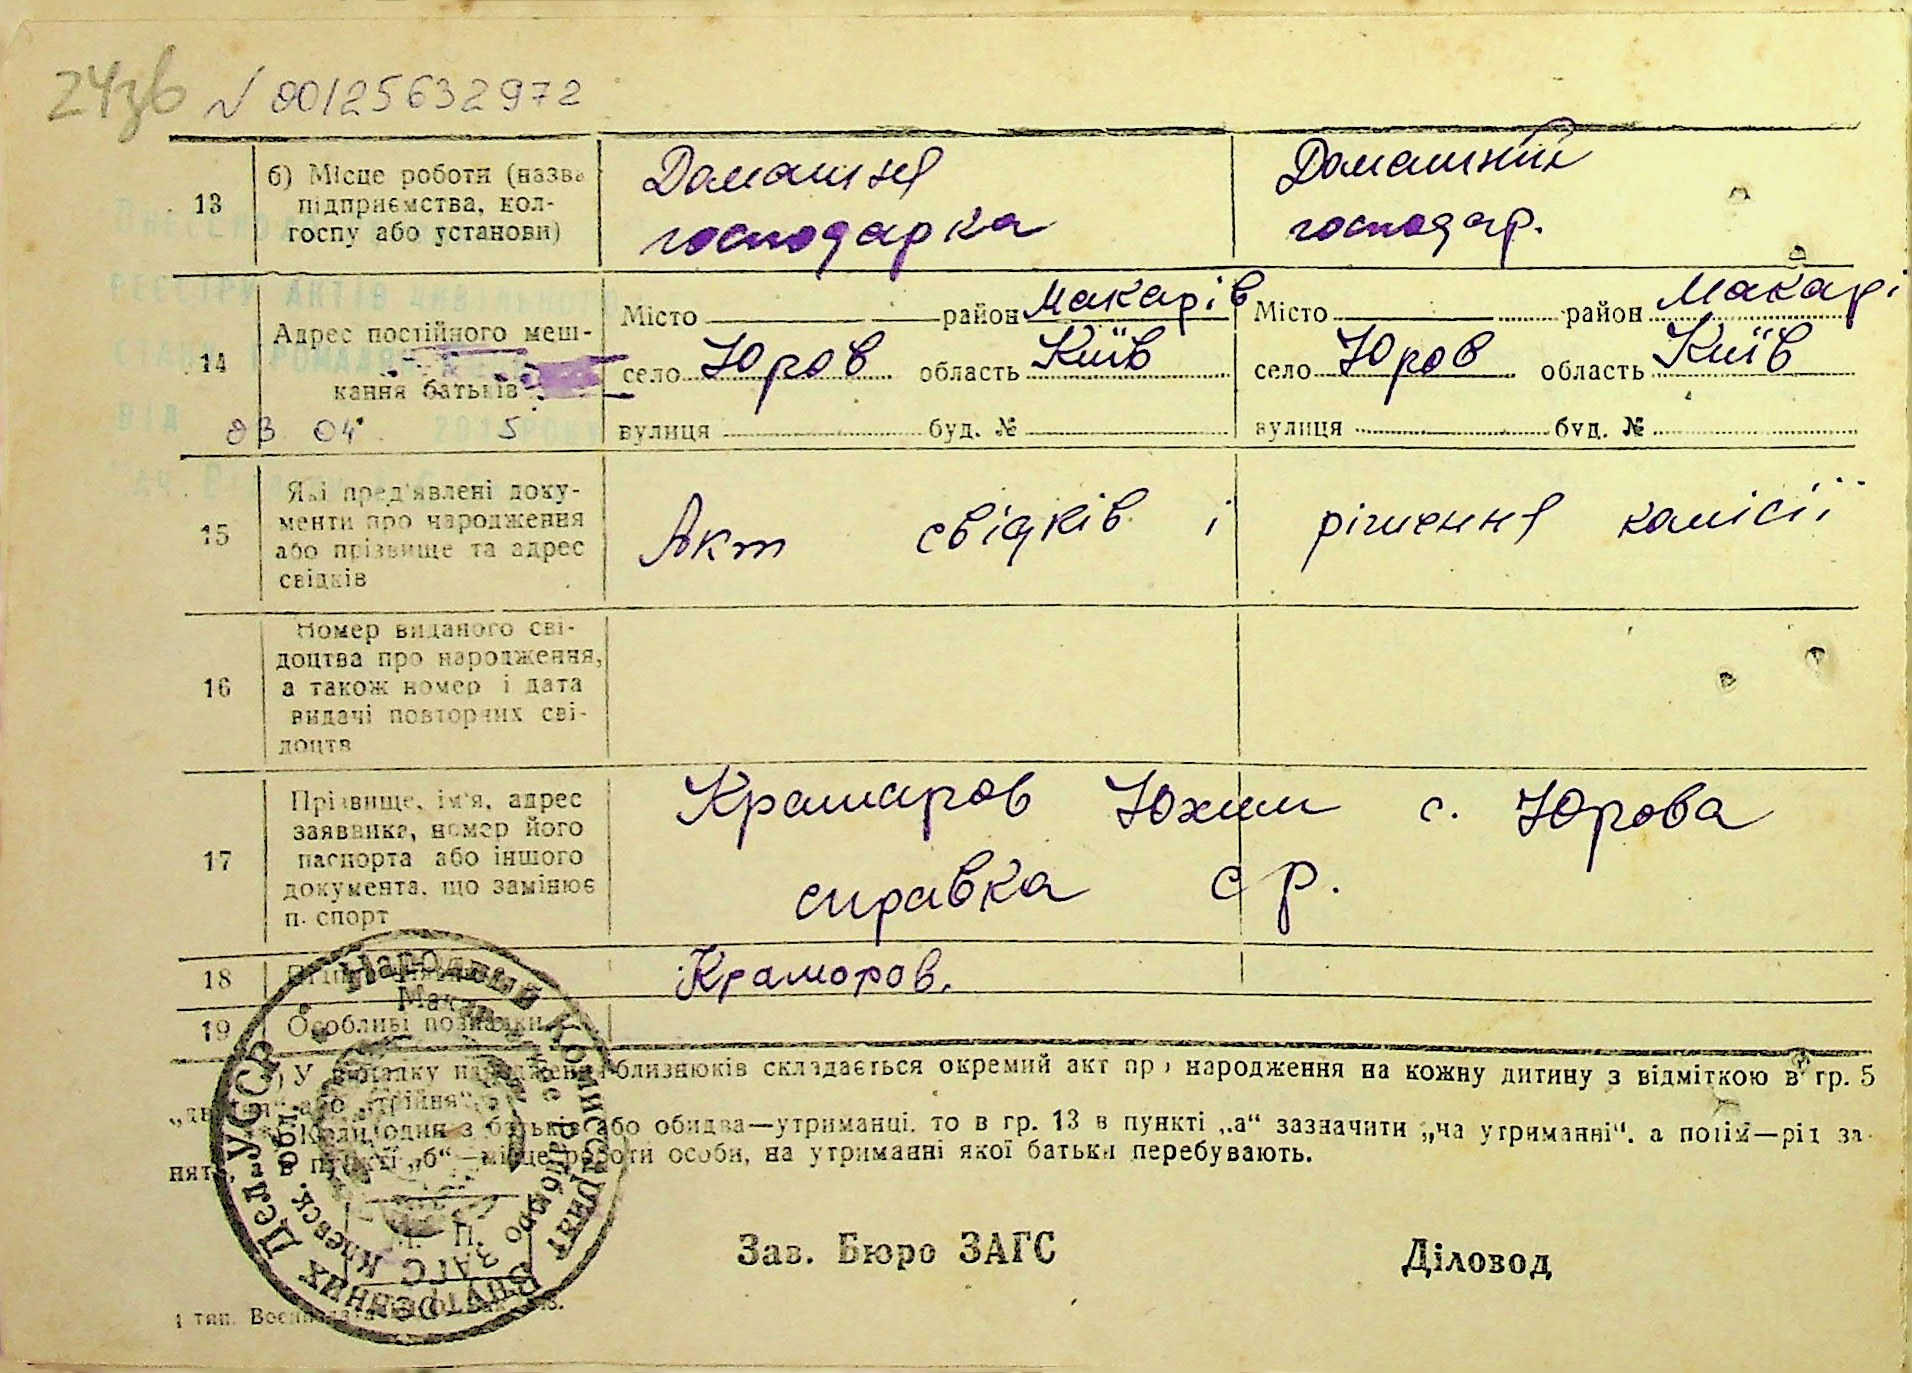 24зв № 00125632972
13 б) Місце роботи (назва підприємства, колгоспу або установи)
Домашня господарка
Домашній господар.
14 Адрес постійного мешкання батьків
Місто район Макарів
село Юров область Київ
вулиця буд. №
Місто район Макарі
село Юров область Київ
вулиця буд. №
03 04 2015 року
15 Які пред'явлені документи про народження або прізвище та адрес свідків
Акт свідків і рішення комісії
16 Номер виданого свідоцтва про народження, а також номер і дата видачі повторних свідоцтв
17 Прізвище, ім'я, адрес заявника, номер його паспорта або іншого документа, що замінює п. спорт
Крамаров Юхим с. Юрова
справка с р.
18
Краморов.
19 Особливі познадки
*) У випадку народження близнюків складається окремий акт про народження на кожну дитину з відміткою в гр. 5
„двійня" або „трійня".
**) Коли один з батьків або обидва—утриманці, то в гр. 13 в пункті „а" зазначити „на утриманні", а потім—рід за-
няття, в пункті „б"—місце роботи особи, на утриманні якої батьки перебувають.
Народный Комиссариат Внутренних Дел УССР
Макаровское райбюро ЗАГС Киевск. обл.
М. П.
Зав. Бюро ЗАГС
Діловод